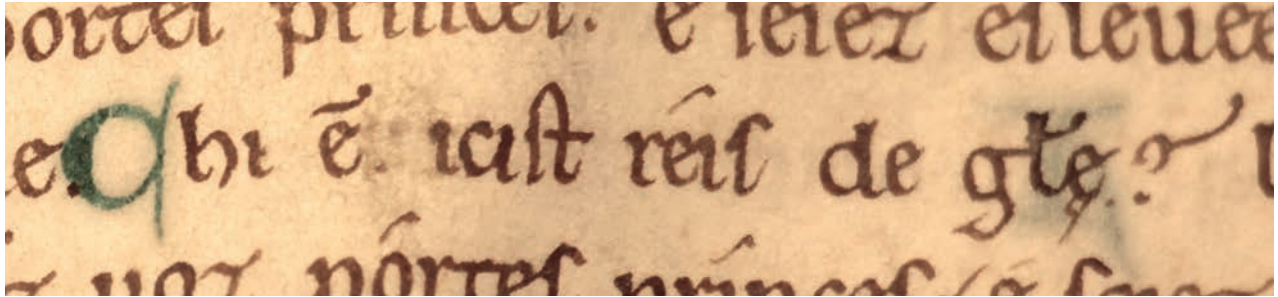 porteſ princeſ. e ſeiez eſleuee
e. Chi ē. iciſt réiſ de głę? l
uoz pórteſ prínceſ / e